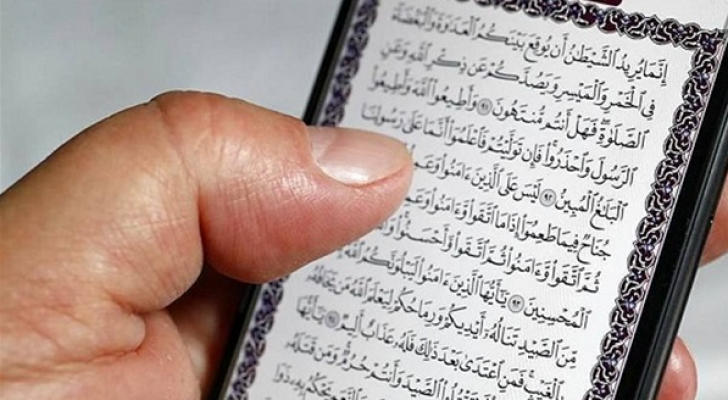 إِنَّمَا يُرِيدُ ٱلشَّيْطَٰنُ أَن يُوقِعَ بَيْنَكُمُ ٱلْعَدَٰوَةَ وَٱلْبَغْضَآءَ
فِي ٱلْخَمْرِ وَٱلْمَيْسِرِ وَيَصُدَّكُمْ عَن ذِكْرِ ٱللَّهِ وَعَنِ
ٱلصَّلَوٰةِ فَهَلْ أَنتُم مُّنتَهُونَ ٩١ وَأَطِيعُوا۟ ٱللَّهَ وَأَطِيعُوا۟
ٱلرَّسُولَ وَٱحْذَرُوا۟ فَإِن تَوَلَّيْتُمْ فَٱعْلَمُوٓا۟ أَنَّمَا عَلَىٰ رَسُولِنَا
ٱلْبَلَٰغُ ٱلْمُبِينُ ٩٢ لَيْسَ عَلَى ٱلَّذِينَ ءَامَنُوا۟
جُنَاحٌ فِيمَا طَعِمُوٓا۟ إِذَا مَا ٱتَّقَوا۟ وَّءَامَنُوا۟
ثُمَّ ٱتَّقَوا۟ وَّءَامَنُوا۟ ثُمَّ ٱتَّقَوا۟ وَّأَحْسَنُوا۟
ٱلْمُحْسِنِينَ ٩٣ يَٰٓأَيُّهَا ٱلَّذِينَ ءَامَنُوا۟ لَيَبْلُوَنَّكُمُ ٱللَّهُ
مِّنَ ٱلصَّيْدِ تَنَالُهُۥٓ أَيْدِيكُمْ وَرِمَاحُكُمْ لِيَعْلَمَ ٱللَّهُ مَن يَخَافُهُۥ
بِٱلْغَيْبِ فَمَنِ ٱعْتَدَىٰ بَعْدَ ذَٰلِكَ فَلَهُۥ عَذَابٌ أَلِيمٌ ٩٤ يَٰٓأَيُّهَا
تَقْتُلُوا۟ ٱلصَّيْدَ وَأَنتُمْ حُرُمٌ وَمَن قَتَلَهُۥ
ٱلنَّعَمِ يَحْكُمُ بِهِۦ ذَوَا